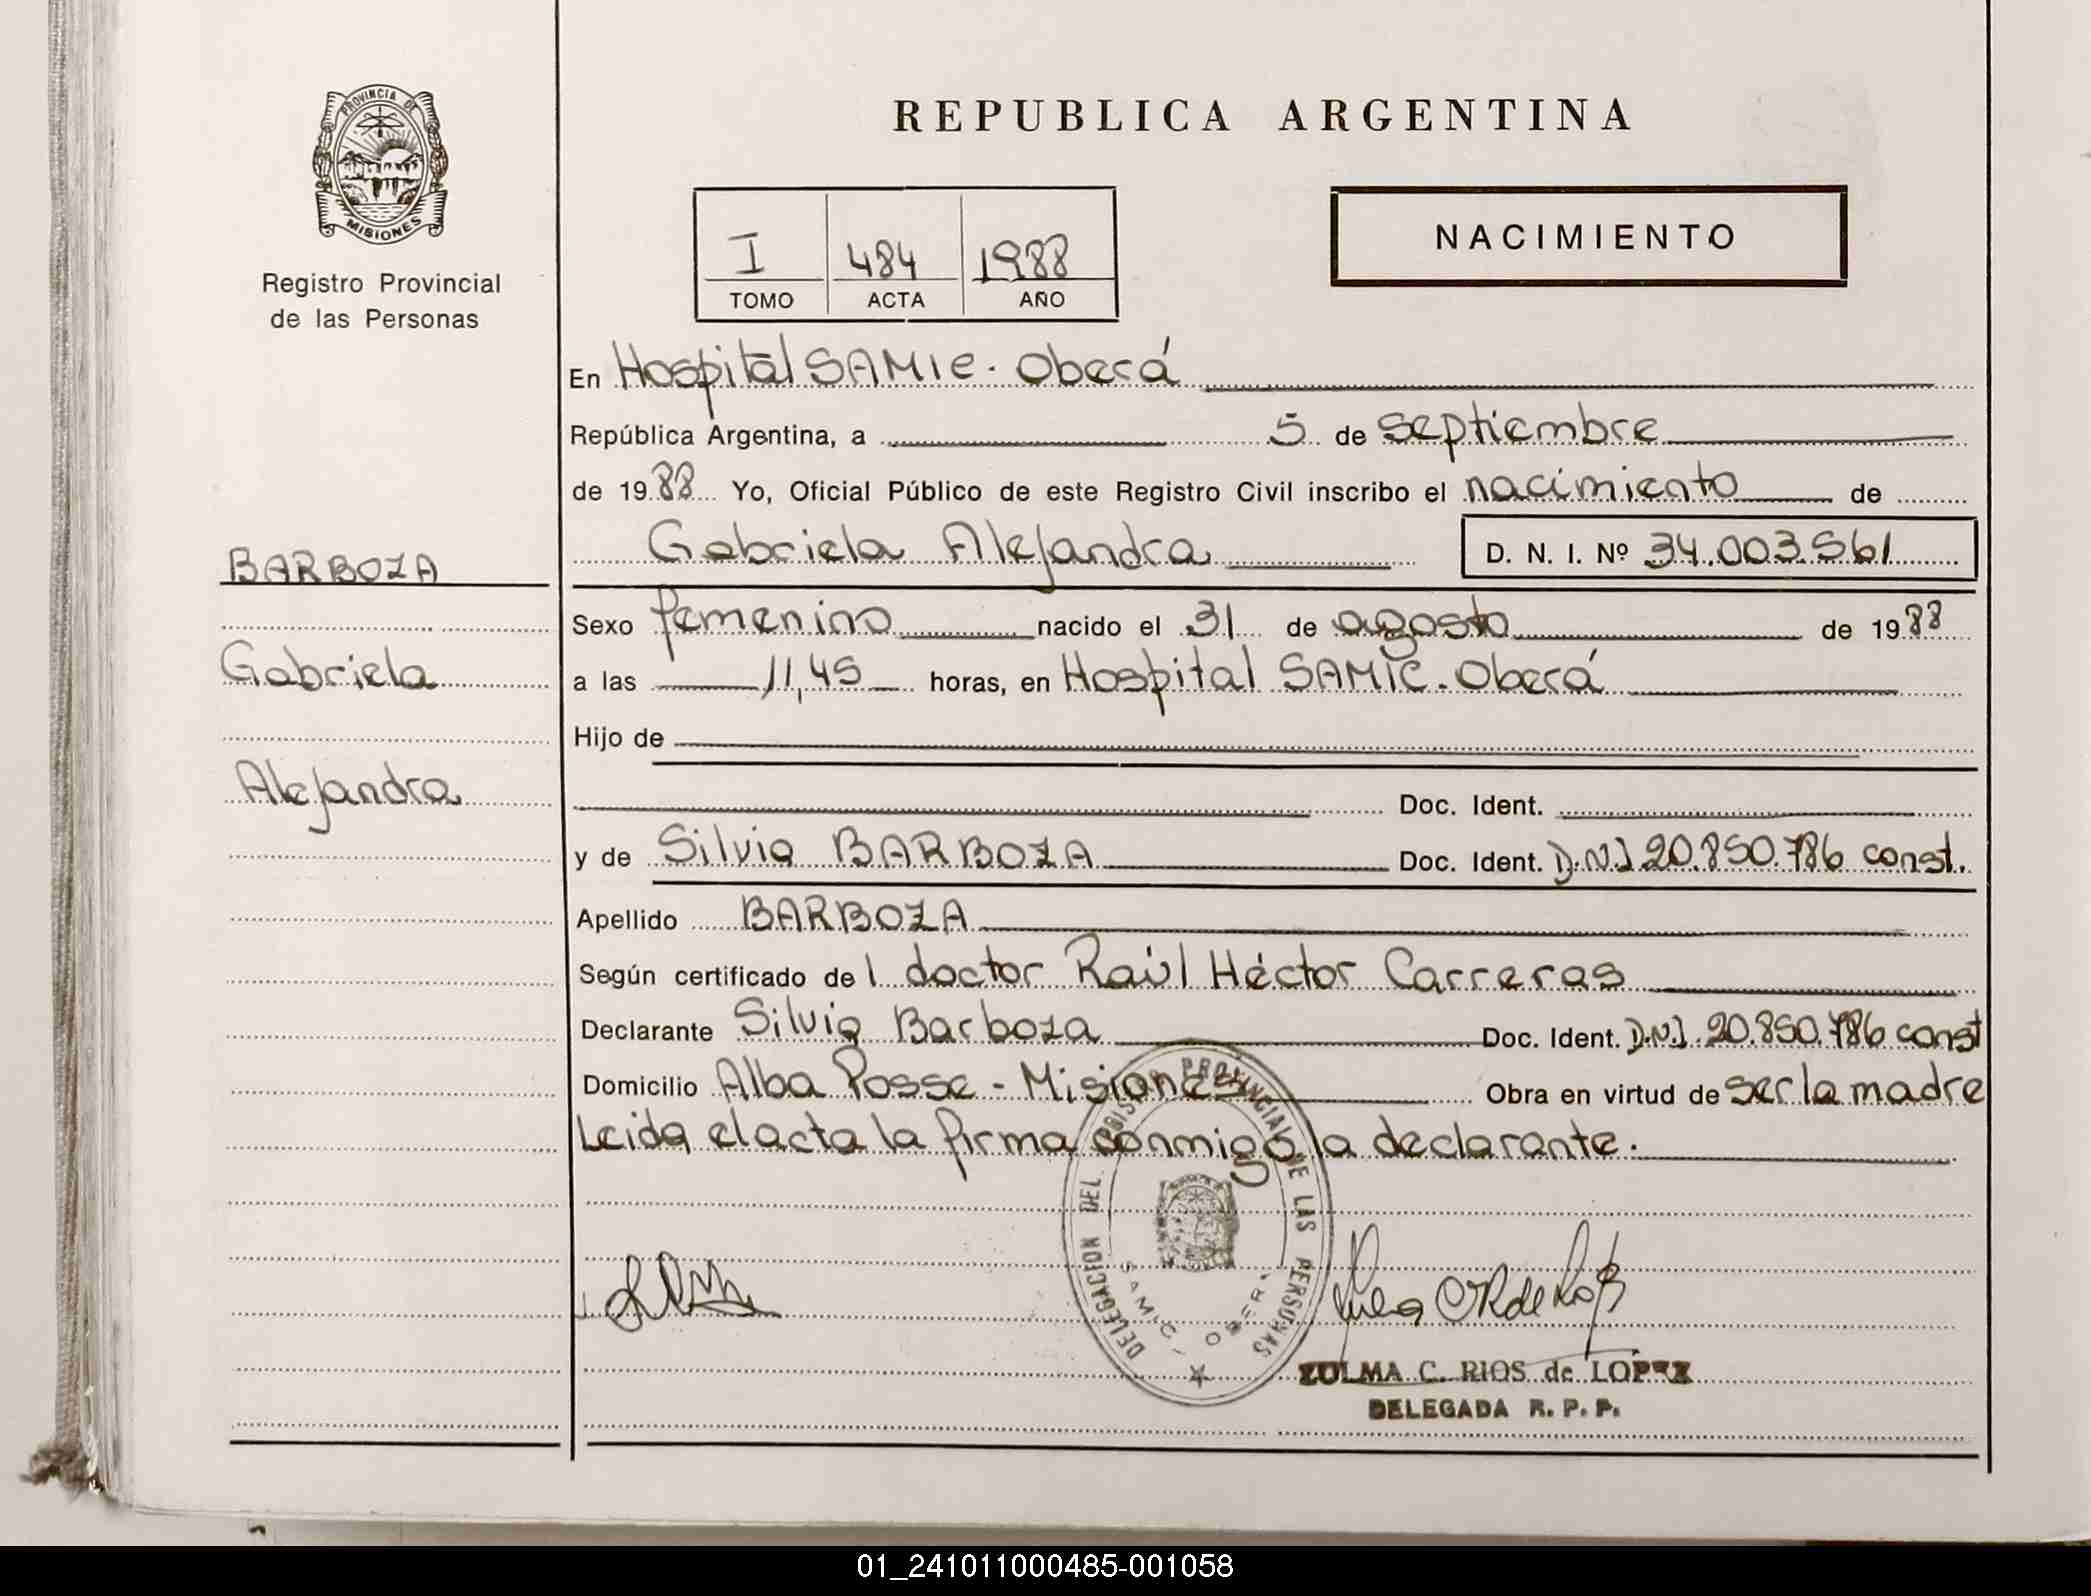 PROVINCIA DE
MISIONES
Registro Provincial
de las Personas
REPUBLICA ARGENTINA
NACIMIENTO
I 484 1988
TOMO ACTA AÑO
En Hospital SAMIC. Oberá
República Argentina, a 5 de septiembre
de 1988 Yo, Oficial Público de este Registro Civil inscribo el nacimiento de
Gabriela Alejandra D. N. I. Nº 34.003.561
BARBOZA
Sexo femenino nacido el 31 de agosto de 1988
Gabriela
a las 11,45 horas, en Hospital SAMIC. Oberá
Hijo de
Alejandra
Doc. Ident.
y de Silvia BARBOZA Doc. Ident. D.N.I 20.850.786 const.
Apellido BARBOZA
Según certificado de l doctor Raúl Héctor Carreras
Declarante Silvia Barboza Doc. Ident. D.N.I. 20.850.786 const
Domicilio Alba Posse - Misiones Obra en virtud de ser la madre
Leida el acta la firma conmigo la declarante.
DELEGACION DEL REGISTRO PROVINCIAL DE LAS PERSONAS
SAMIC - OBERA
ZULMA C. RIOS de LOPEZ
DELEGADA R. P. P.
01_241011000485-001058